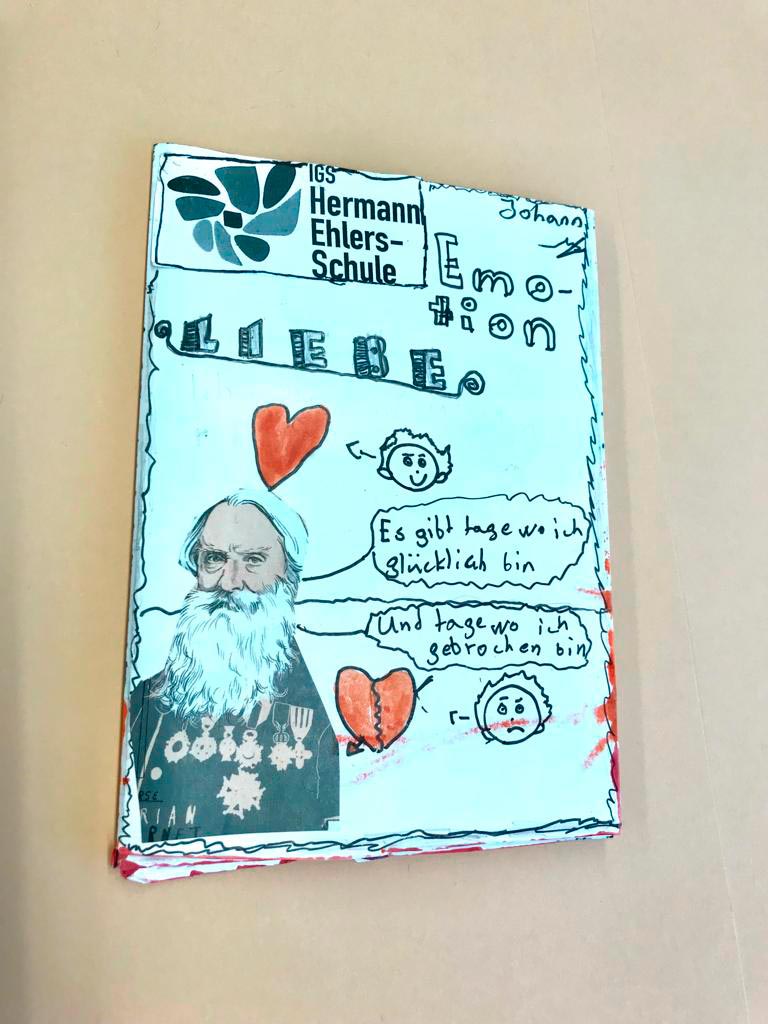 IGS
Hermann
Ehlers-
Schule
Johann
Emo-
tion
LIEBE
Es gibt tage wo ich
glücklich bin
Und tage wo ich
gebrochen bin
RIAN